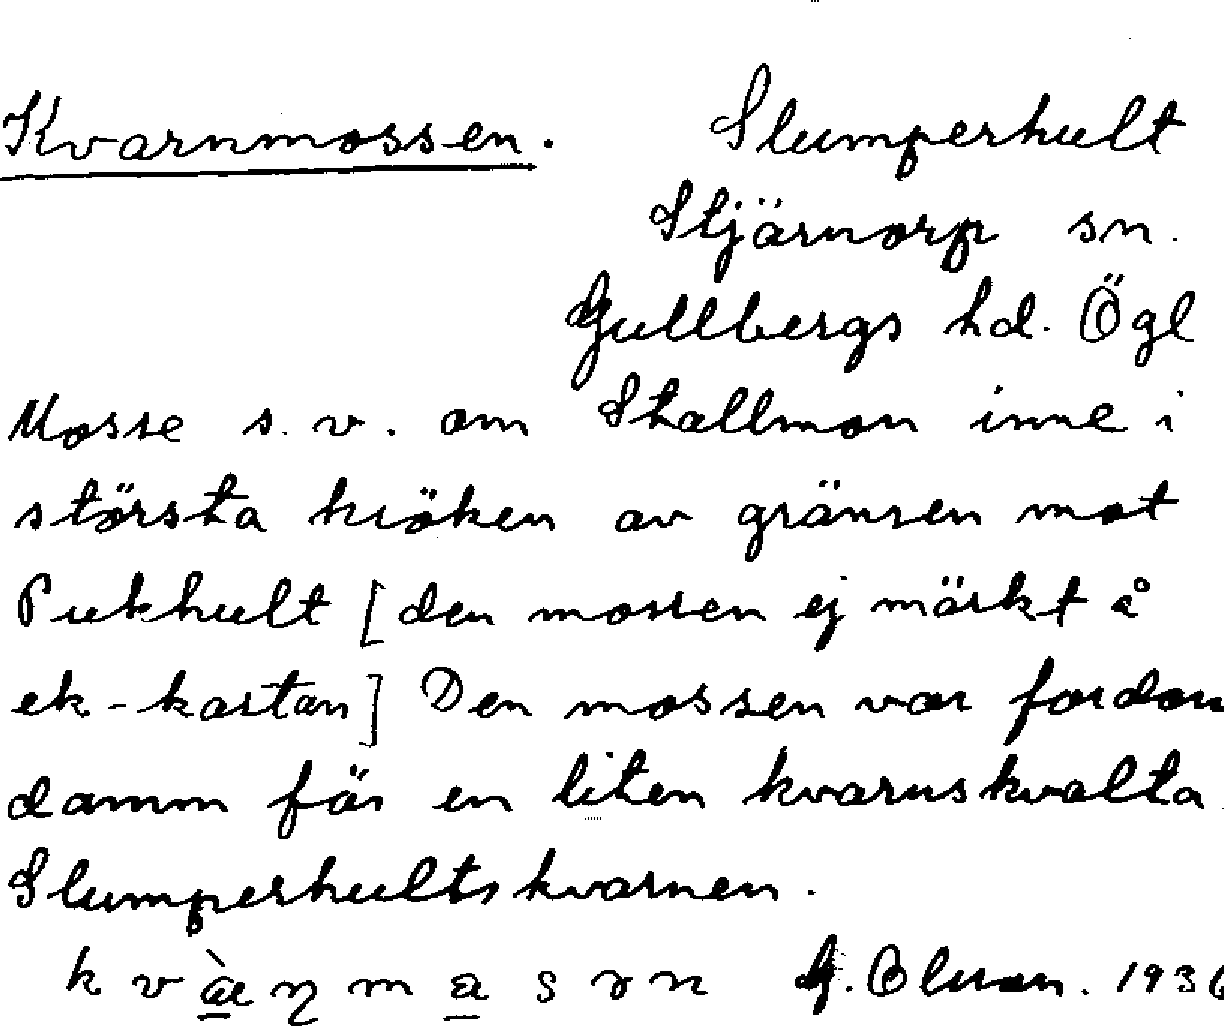 Kvarnmossen. Slumperhult
Stjärnorp sn.
Gullbergs hd. Ögl
Mosse s.v. om Stallmon inne i
största kröken av gränsen mot
Pukhult [den mossen ej märkt å
ek-kartan] Den mossen var fordom
damm för en liten kvarnskvalta
Slumperhultskvarnen.
G. Olsson. 1936